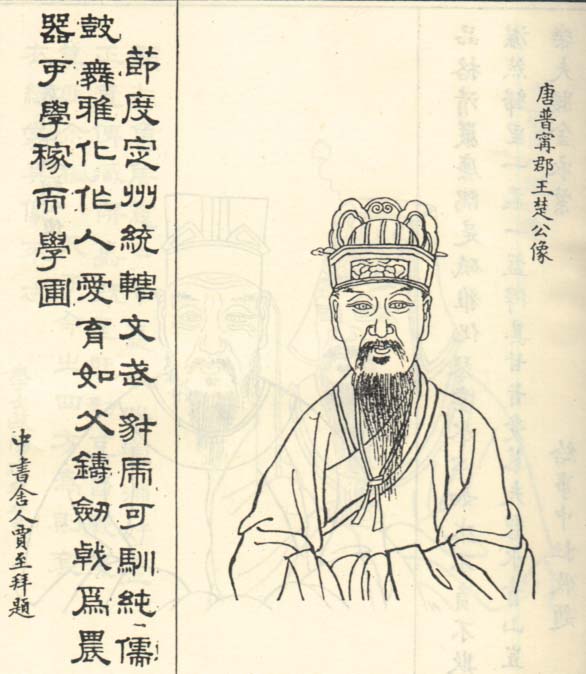 唐普甯郡王楚公像
節度定州統轄文武豺虎可馴純儒
鼓舞雅化作人愛育如父鑄劒戟爲農
器于學稼而學圃
中書舍人賈至拜題